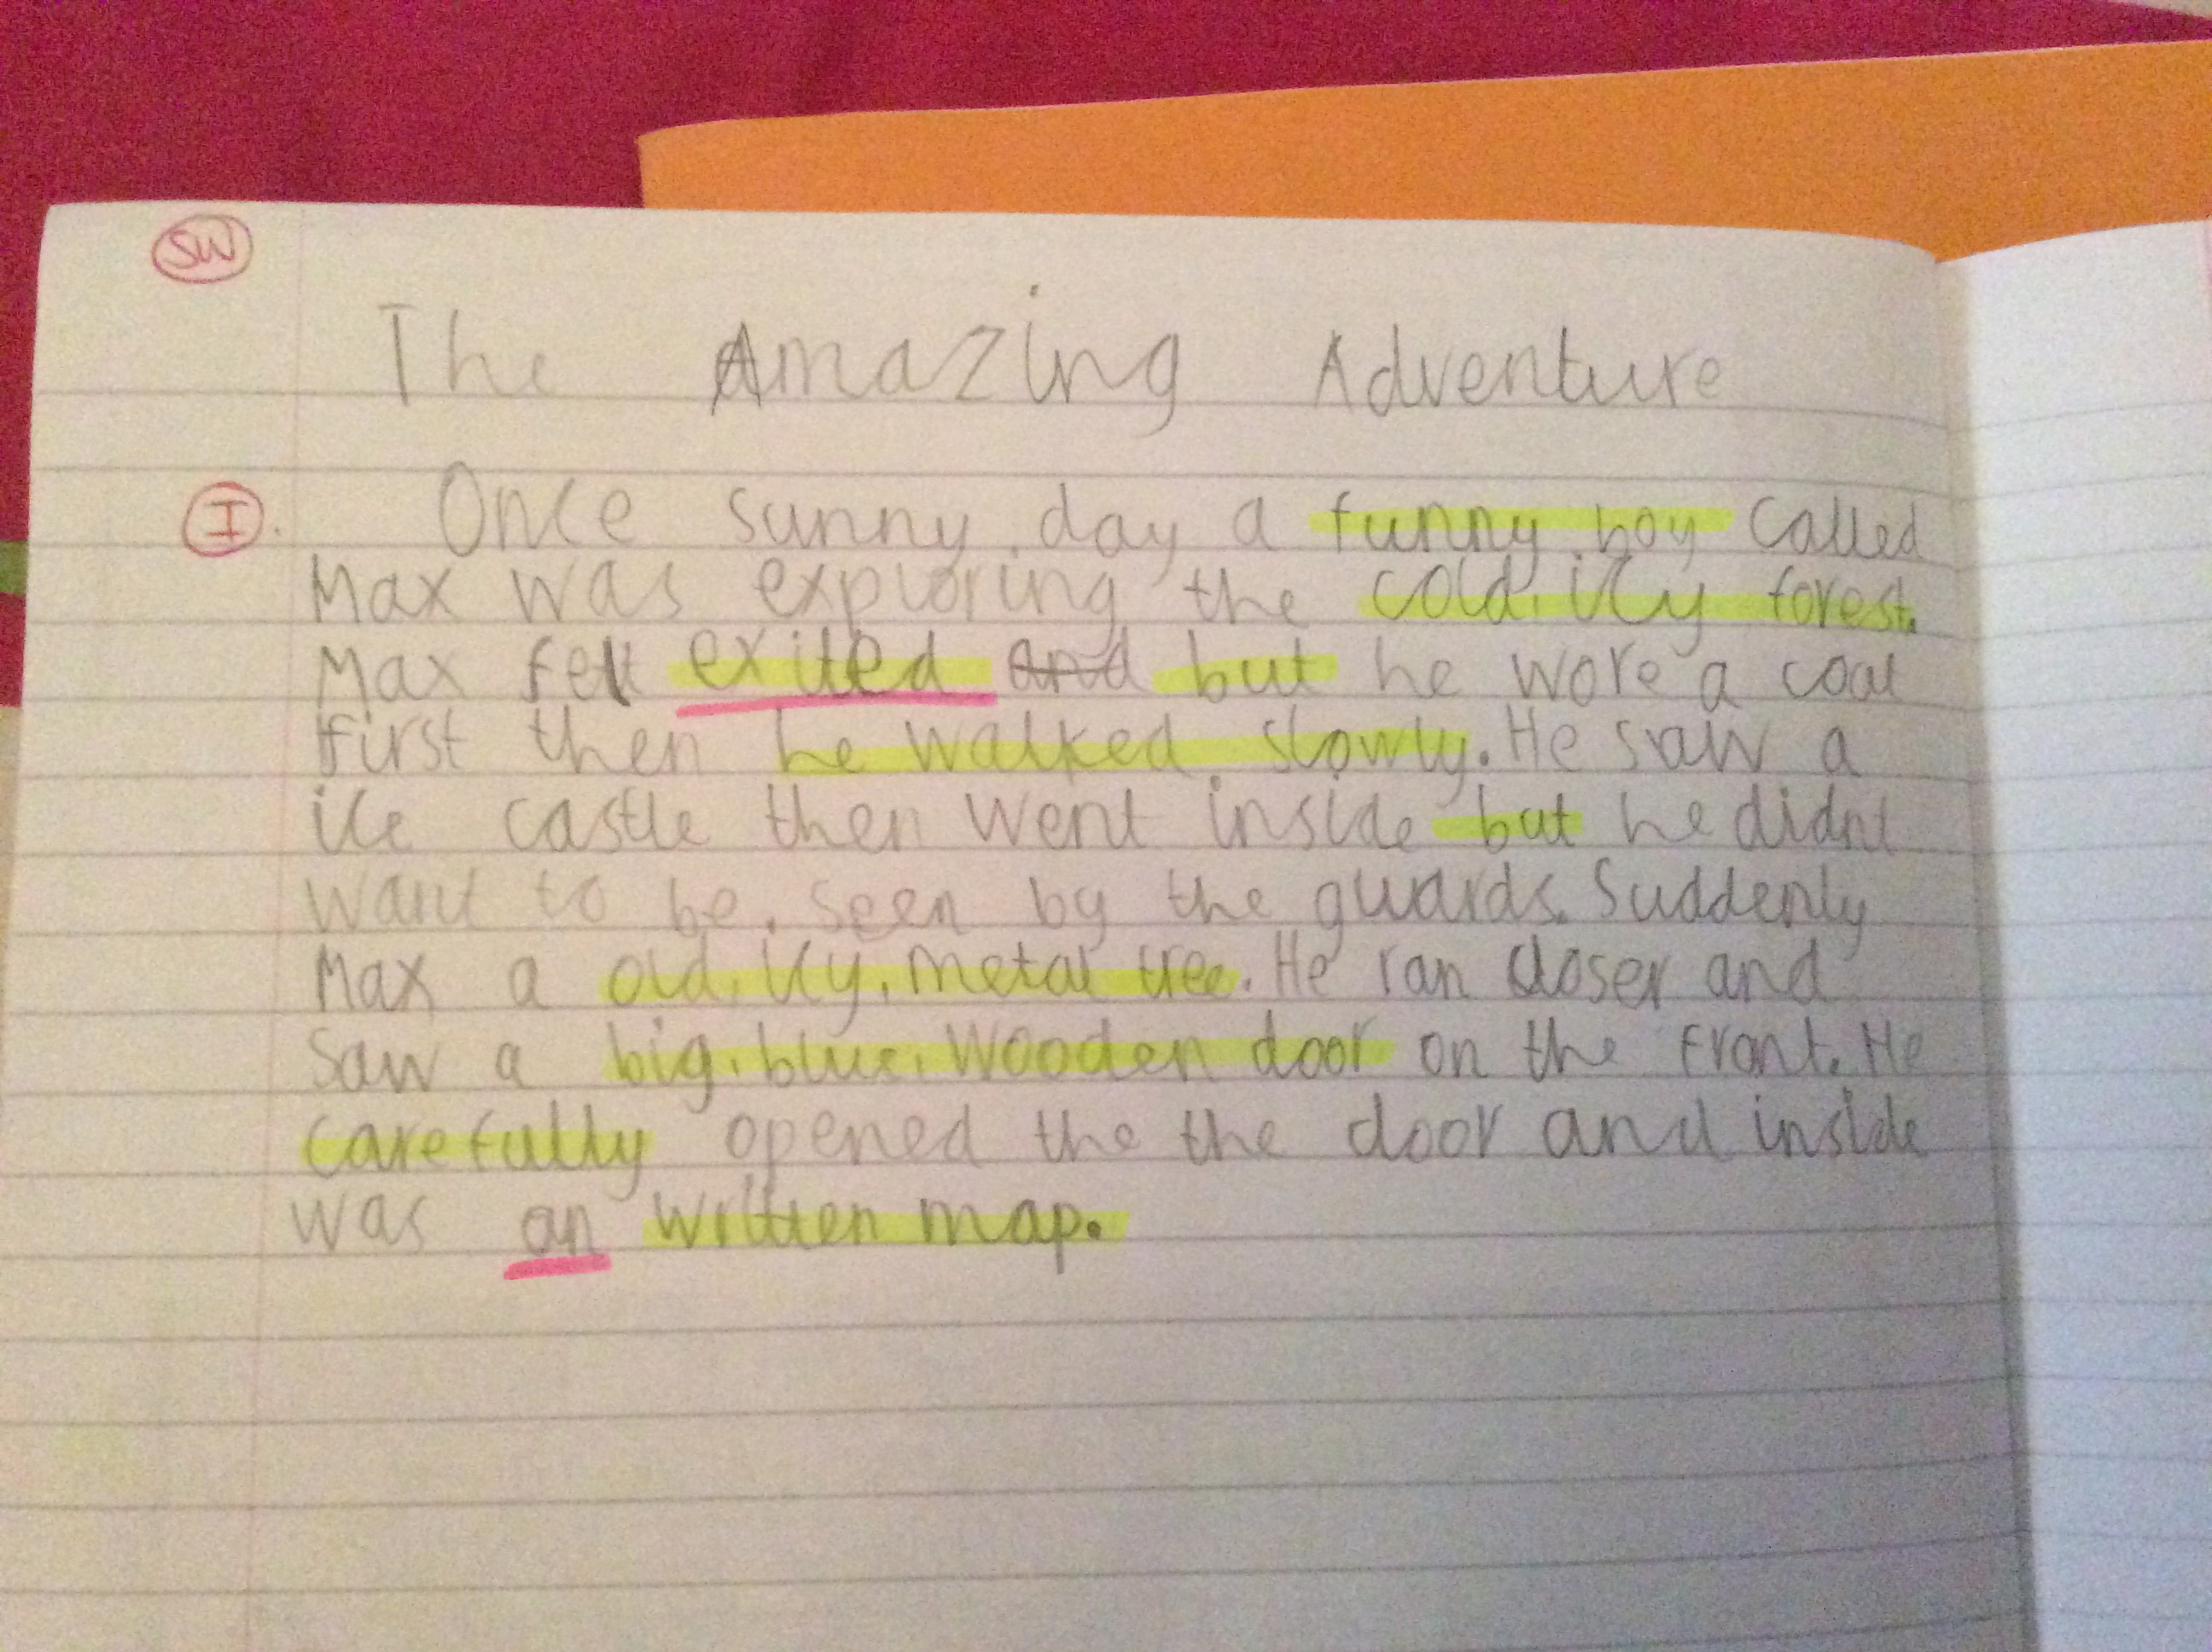 SW
The Amazing Adventure
I. Once sunny day a funny boy called
Max was exploring the cold, icy forest.
Max felt exited and but he wore a coat
first then he walked slowly. He saw a
ice castle then went inside but he didnt
want to be seen by the guards. Suddenly
Max a old, icy, metal tree. He ran closer and
saw a big, blue, wooden door on the front. He
carefully opened the the door and inside
was an written map.